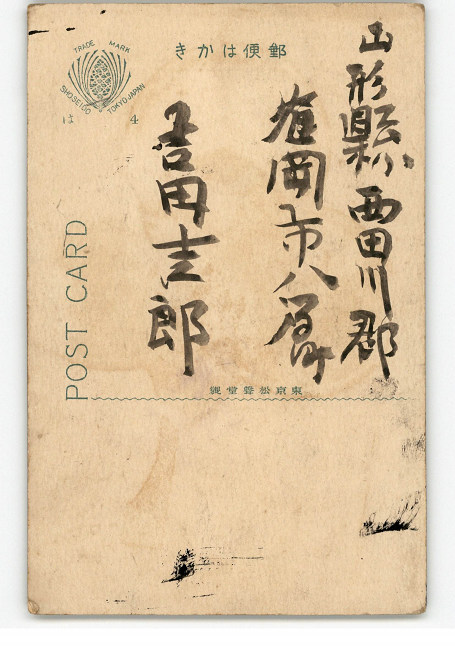 郵便はかき
TRADE MARK
SHOSEIDO TOKYO JAPAN
は 4
山形縣西田川郡
岡市八
田吉郎
POST CARD
東京松聲堂製